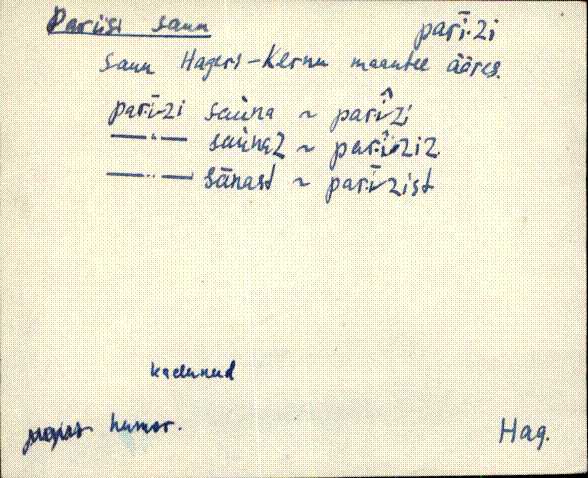 Pariisi saun parī·zi
saun Hageri-Kernu maantee ääres.
parī·zi sàuna ~ parî·zi
—"— sàunaz ~ parî·ziz
—"— sānast ~ parī·zist
kadunud
humor.
Hag.